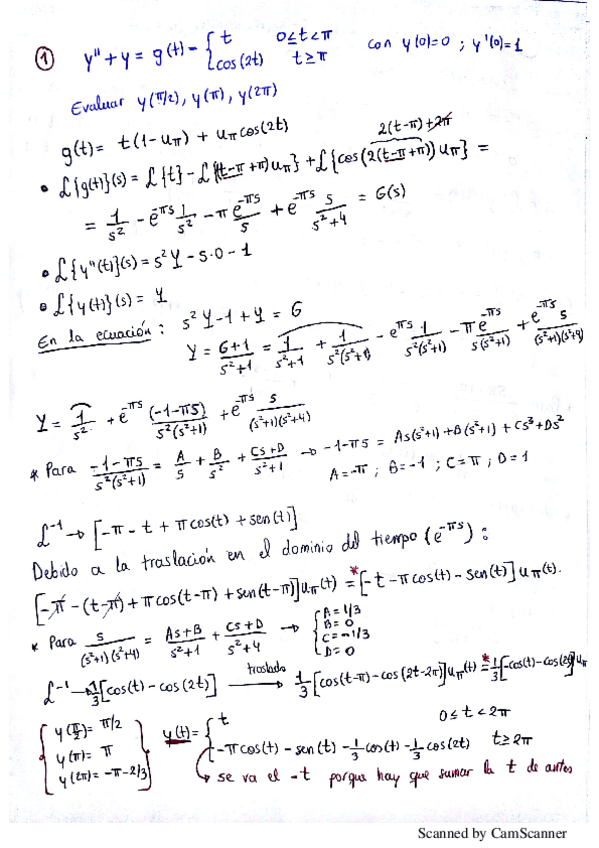 ① y'' + y = g(t) = { t   0≤t<π ; cos(2t)   t≥π   con y(0)=0 ; y'(0)=1
Evaluar y(π/2), y(π), y(2π)
g(t) = t(1-uπ) + uπ cos(2t)
2(t-π)+2π
• ℒ{g(t)}(s) = ℒ{t} - ℒ{(t-π+π)uπ} + ℒ{cos(2(t-π+π))uπ} =
= 1/s² - e^-πs 1/s² - π e^-πs/s + e^-πs s/(s²+4) = G(s)
• ℒ{y''(t)}(s) = s²Y - s·0 - 1
• ℒ{y(t)}(s) = Y
En la ecuación : s²Y - 1 + Y = G
Y = (G+1)/(s²+1) = 1/(s²+1) + 1/(s²(s²+1)) - e^-πs 1/(s²(s²+1)) - π e^-πs/(s(s²+1)) + e^-πs s/((s²+1)(s²+4))
Y = 1/s² + e^-πs (-1-πs)/(s²(s²+1)) + e^-πs s/((s²+1)(s²+4))
* Para (-1-πs)/(s²(s²+1)) = A/s + B/s² + (Cs+D)/(s²+1) → -1-πs = As(s²+1) + B(s²+1) + Cs³+Ds²
A=-π ; B=-1 ; C=π ; D=1
ℒ⁻¹ → [-π - t + π cos(t) + sen(t)]
Debido a la traslación en el dominio del tiempo (e^-πs) :
[-π - (t-π) + π cos(t-π) + sen(t-π)]uπ(t) =* [-t - π cos(t) - sen(t)] uπ(t).
* Para s/((s²+1)(s²+4)) = (As+B)/(s²+1) + (Cs+D)/(s²+4) → { A=1/3
B=0
C=-1/3
D=0
ℒ⁻¹ → 1/3[cos(t) - cos(2t)] traslado → 1/3[cos(t-π) - cos(2t-2π)]uπ(t) =* 1/3[-cos(t)-cos(2t)]uπ
{ y(π/2) = π/2
y(π) = π
y(2π) = -π-2/3 }
y(t) = { t   0≤t<2π
-π cos(t) - sen(t) - 1/3 cos(t) - 1/3 cos(2t)   t≥2π
→ se va el -t porque hay que sumar la t de antes
Scanned by CamScanner